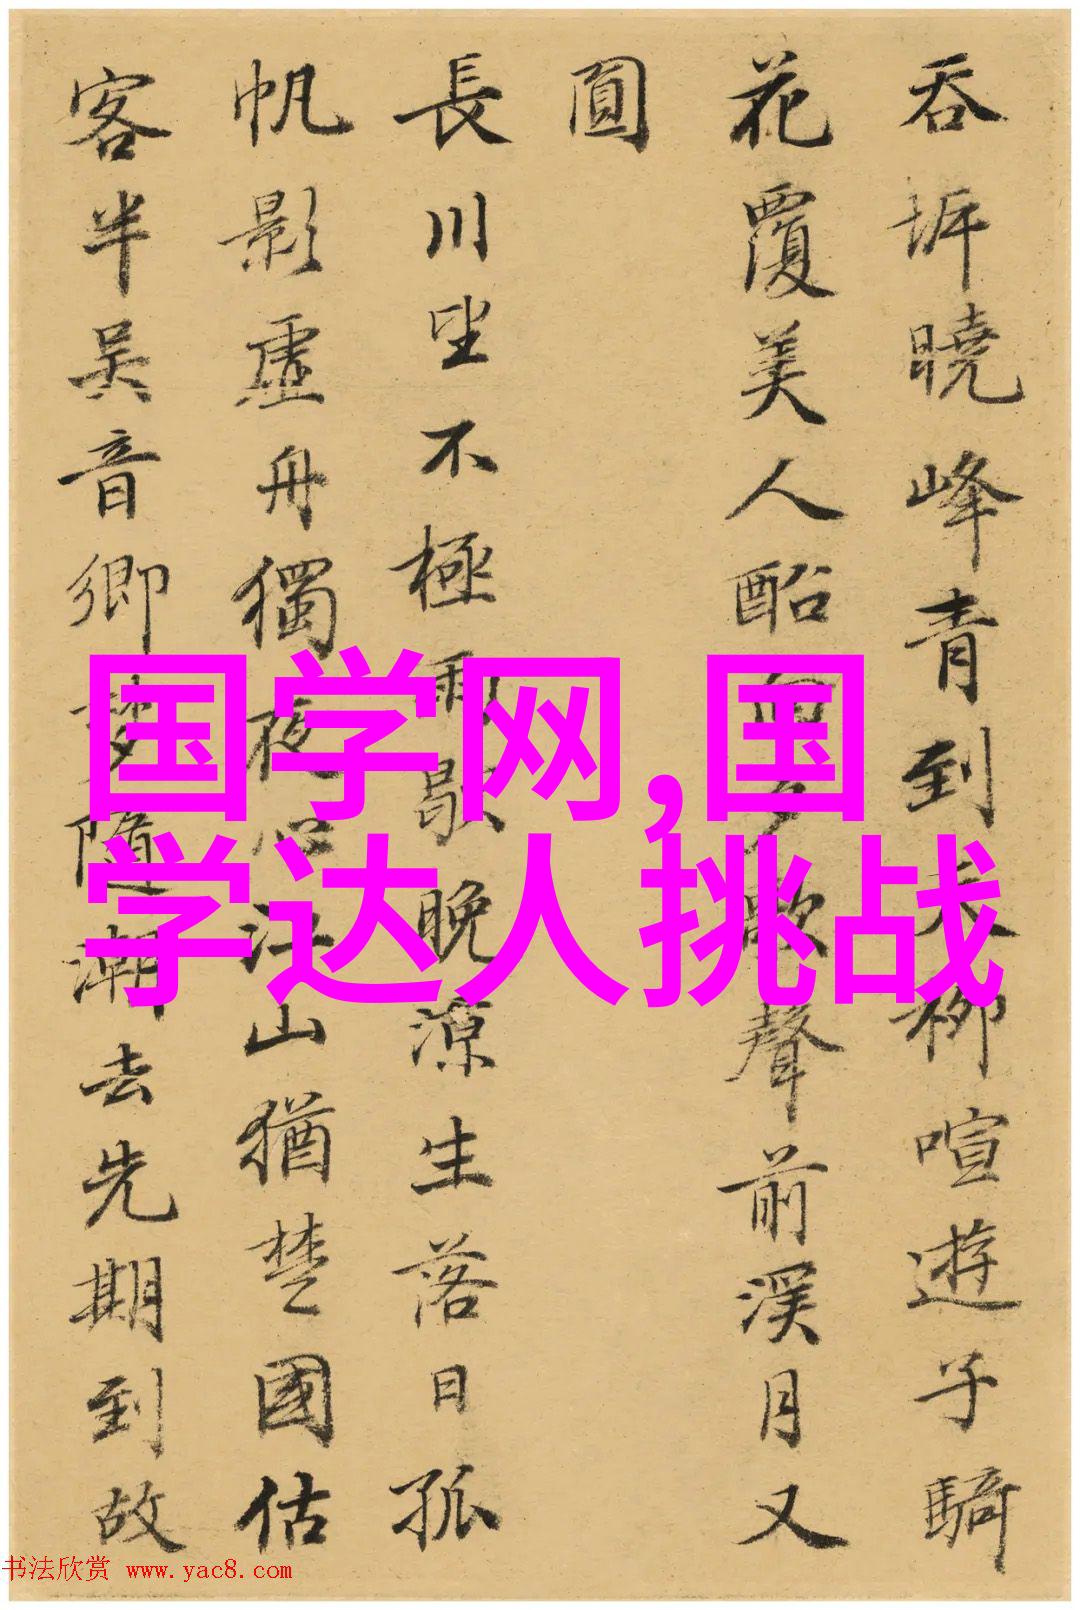 吞坼曉峰青到天柳喧遊子騎
花覆美人酩 歌聲前溪月又
圓
長川坐不極雨歇晚涼生落日孤
帆影虛舟獨夜心江山猶楚國估
客半吳音鄉夢隨潮去先期到故
国学网,国
学达人挑战
书法欣赏 www.yac8.com